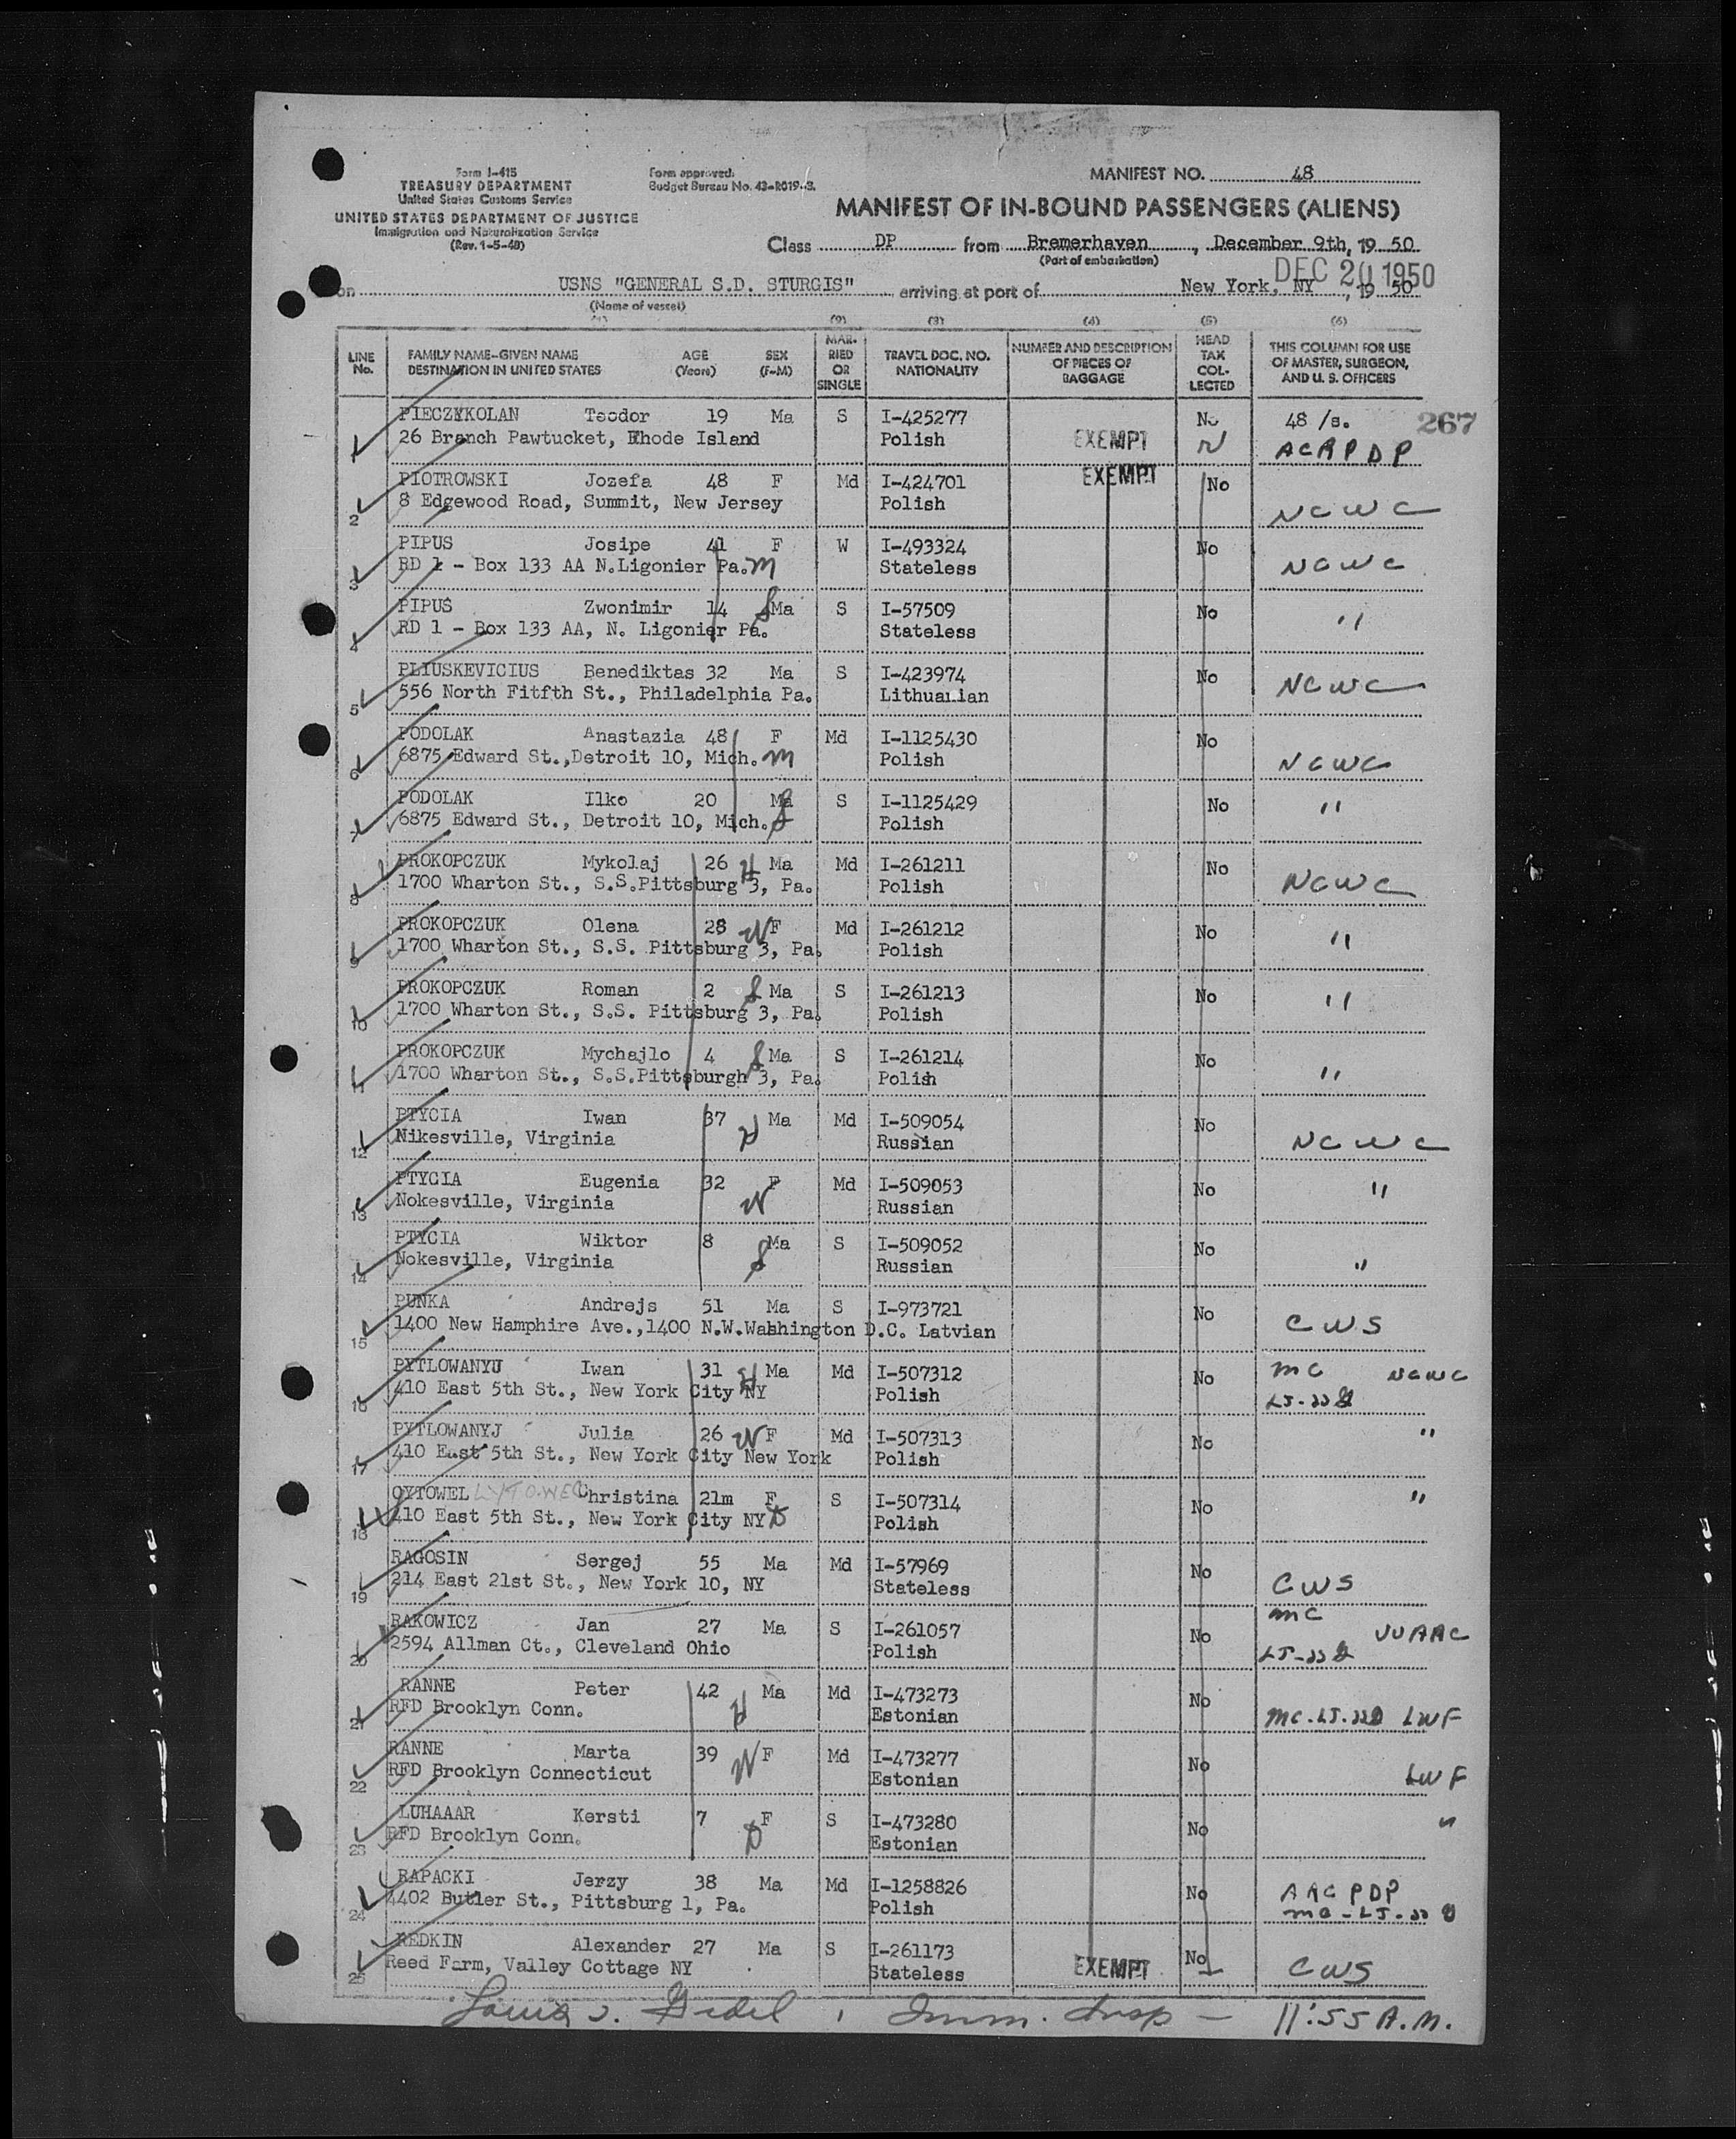 Form I-415
TREASURY DEPARTMENT
United States Customs Service
UNITED STATES DEPARTMENT OF JUSTICE
Immigration and Naturalization Service
(Rev. 1-5-48)
Form approved.
Budget Bureau No. 43-R019-3.
MANIFEST NO. 48
MANIFEST OF IN-BOUND PASSENGERS (ALIENS)
Class DP from Bremerhaven, December 9th, 19 50
(Port of embarkation)
DEC 20 1950
on USNS "GENERAL S.D. STURGIS" arriving at port of New York, NY, 19 50
(Name of vessel)
(3) (4) (5) (6)
LINE No. FAMILY NAME-GIVEN NAME DESTINATION IN UNITED STATES AGE (Years) SEX (F-M) MARRIED OR SINGLE TRAVEL DOC. NO. NATIONALITY NUMBER AND DESCRIPTION OF PIECES OF BAGGAGE HEAD TAX COLLECTED THIS COLUMN FOR USE OF MASTER, SURGEON, AND U. S. OFFICERS
1 PIECZYKOLAN Teodor 19 Ma S I-425277 No 48 /s. 267
26 Branch Pawtucket, Rhode Island Polish EXEMPT N ACRPDP
2 PIOTROWSKI Jozefa 48 F Md I-424701 EXEMPT No
8 Edgewood Road, Summit, New Jersey Polish NCWC
3 PIPUS Josipe 41 F W I-493324 No
RD 1 - Box 133 AA N.Ligonier Pa. m Stateless NCWC
4 PIPUS Zwonimir 14 S Ma S I-57509 No "
RD 1 - Box 133 AA, N. Ligonier Pa. Stateless
5 PLIUSKEVICIUS Benediktas 32 Ma S I-423974 No NCWC
556 North Fitfth St., Philadelphia Pa. Lithuanian
6 PODOLAK Anastazia 48 F Md I-1125430 No
6875 Edward St.,Detroit 10, Mich. m Polish NCWC
7 PODOLAK Ilko 20 Ma S I-1125429 No "
6875 Edward St., Detroit 10, Mich. S Polish
8 PROKOPCZUK Mykolaj 26 H Ma Md I-261211 No
1700 Wharton St., S.S.Pittsburg 3, Pa. Polish NCWC
9 PROKOPCZUK Olena 28 W F Md I-261212 No "
1700 Wharton St., S.S. Pittsburg 3, Pa. Polish
10 PROKOPCZUK Roman 2 S Ma S I-261213 No "
1700 Wharton St., S.S. Pittsburg 3, Pa. Polish
11 PROKOPCZUK Mychajlo 4 S Ma S I-261214 No "
1700 Wharton St., S.S.Pittsburgh 3, Pa. Polish
12 PTYCIA Iwan 37 H Ma Md I-509054 No
Nikesville, Virginia Russian NCWC
13 PTYCIA Eugenia 32 F Md I-509053 No "
Nokesville, Virginia W Russian
14 PTYCIA Wiktor 8 Ma S I-509052 No "
Nokesville, Virginia S Russian
15 PUNKA Andrejs 51 Ma S I-973721 No CWS
1400 New Hamphire Ave.,1400 N.W.Washington D.C. Latvian
16 PYTLOWANYJ Iwan 31 H Ma Md I-507312 No MC NCWC
410 East 5th St., New York City NY Polish
17 PYTLOWANYJ Julia 26 W F Md I-507313 No "
410 East 5th St., New York City New York Polish
18 OYTOWEL LYTOWEC Christina 21m F S I-507314 No "
410 East 5th St., New York City NY D Polish
19 RAGOSIN Sergej 55 Ma Md I-57969 No CWS
214 East 21st St., New York 10, NY Stateless
20 RAKOWICZ Jan 27 Ma S I-261057 No MC UUAAC
2594 Allman Ct., Cleveland Ohio Polish
21 RANNE Peter 42 H Ma Md I-473273 No
RFD Brooklyn Conn. Estonian LWF
22 RANNE Marta 39 W F Md I-473277 No
RFD Brooklyn Connecticut Estonian LWF
23 LUHAAAR Kersti 7 F S I-473280 No "
RFD Brooklyn Conn. D Estonian
24 RAPACKI Jerzy 38 Ma Md I-1258826 No AACPDP
4402 Butler St., Pittsburg 1, Pa. Polish
25 REDKIN Alexander 27 Ma S I-261173 No
Reed Farm, Valley Cottage NY Stateless EXEMPT CWS
Imm. Insp - 11:55 A.M.